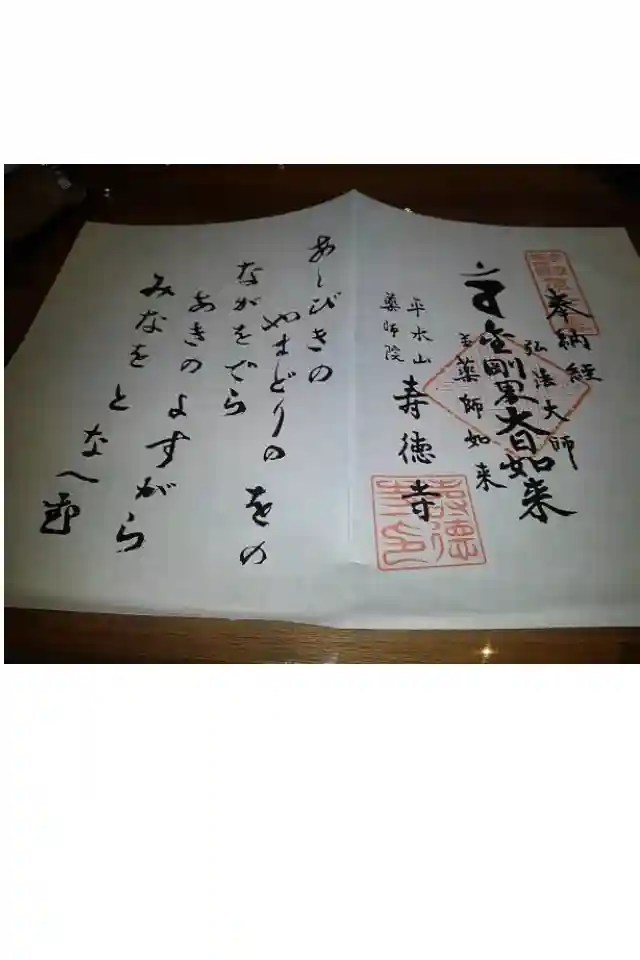 奉納経
弘法大師
金剛界大日如来
薬師如来
平水山
薬師院
寿徳寺
あしびきの
やまどりのをの
ながをでら
あきのよすがら
みなをとなへむ